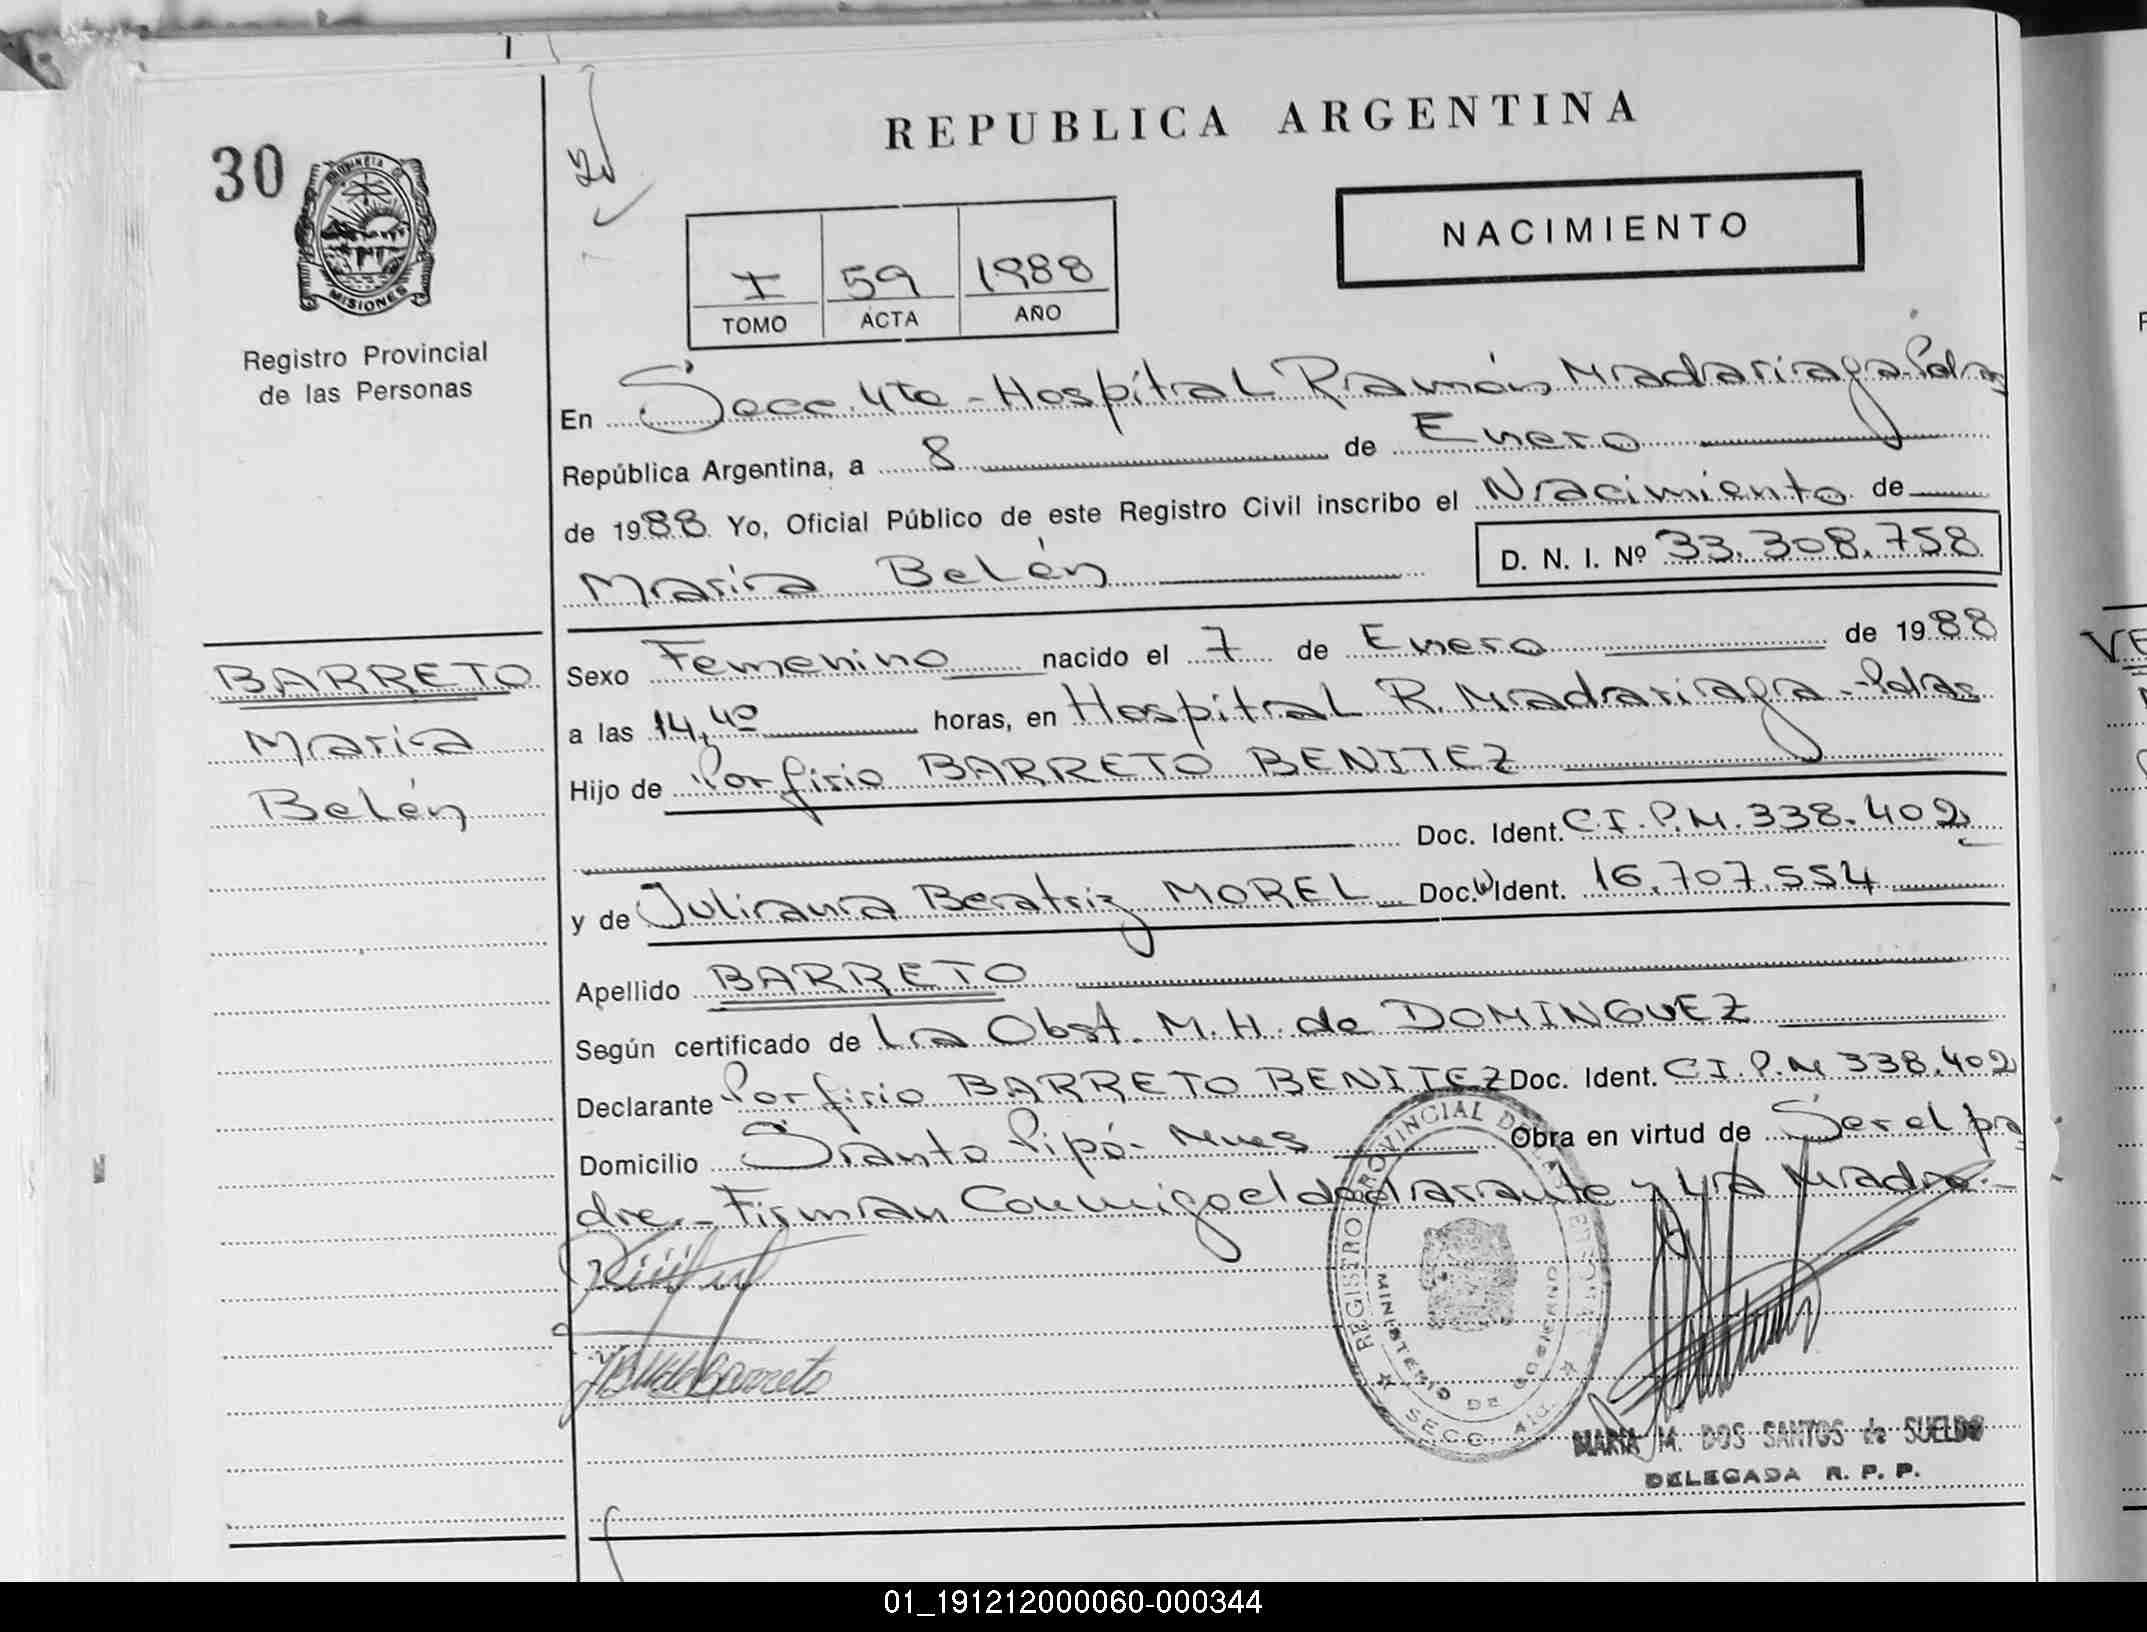 30
PROVINCIA DE
MISIONES
Registro Provincial
de las Personas
REPUBLICA ARGENTINA
NACIMIENTO
I 59 1988
TOMO ACTA AÑO
En Secc. 4ta - Hospital Ramón Madariaga - Pdas
República Argentina, a 8 de Enero
de 1988 Yo, Oficial Público de este Registro Civil inscribo el Nacimiento de
María Belén D. N. I. Nº 33.308.758
BARRETO
María
Belén
Sexo Femenino nacido el 7 de Enero de 1988
a las 14,40 horas, en Hospital R. Madariaga - Pdas
Hijo de Porfirio BARRETO BENITEZ
Doc. Ident. C.I.P.M. 338.402
y de Juliana Beatriz MOREL Doc. Ident. 16.707.554
Apellido BARRETO
Según certificado de La Obst. M.H. de DOMINGUEZ
Declarante Porfirio BARRETO BENITEZ Doc. Ident. C.I.P.M 338.402
Domicilio Santo Pipó - Mnes Obra en virtud de Ser el pa
dre.- Firman Conmigo el declarante y La Madre.-
REGISTRO PROVINCIAL DE LAS PERSONAS
MINISTERIO DE GOBIERNO
SECC. 4ta.
MARIA M. DOS SANTOS de SUELDO
DELEGADA R. P. P.
01_191212000060-000344